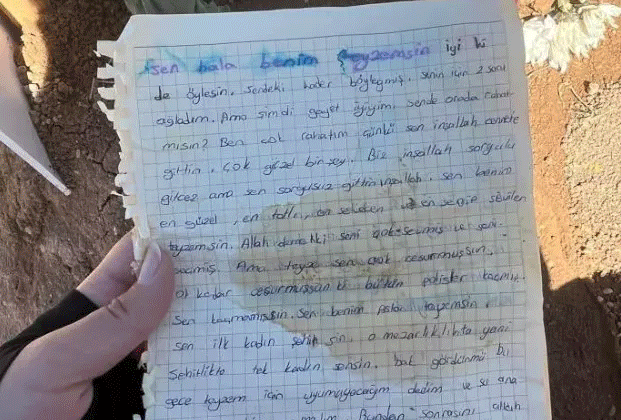 Sen hala benim teyzemsin iyi ki
de öylesin. Sendeki kader böyleymiş. Senin için 2 saat
ağladım. Ama şimdi gayet iyiyim. Sende orada rahat
mısın? Ben çok rahatım çünkü sen inşallah cennete
gittin. Çok güzel bir şey. Biz inşallah sorgulu
gitcez ama sen sorgusuz gittin inşallah. Sen benim
en güzel, en tatlı, en en sevilen
teyzemsin. Allah demekki seni çok sevmiş ve
seçmiş. Ama teyze sen çok cesurmuşsun.
O kadar cesurmuşsun ki bütün polisler kaçmış
sen kaçmamışsın. Sen benim teyzemsin.
Sen ilk kadın şehitsin. O mezarlıklıkta yani
Şehitlikte tek kadın sensin. bak gördünmü bu
gece teyzem için uyumayacağım dedim ve şu ana
Bundan sonrasını allah